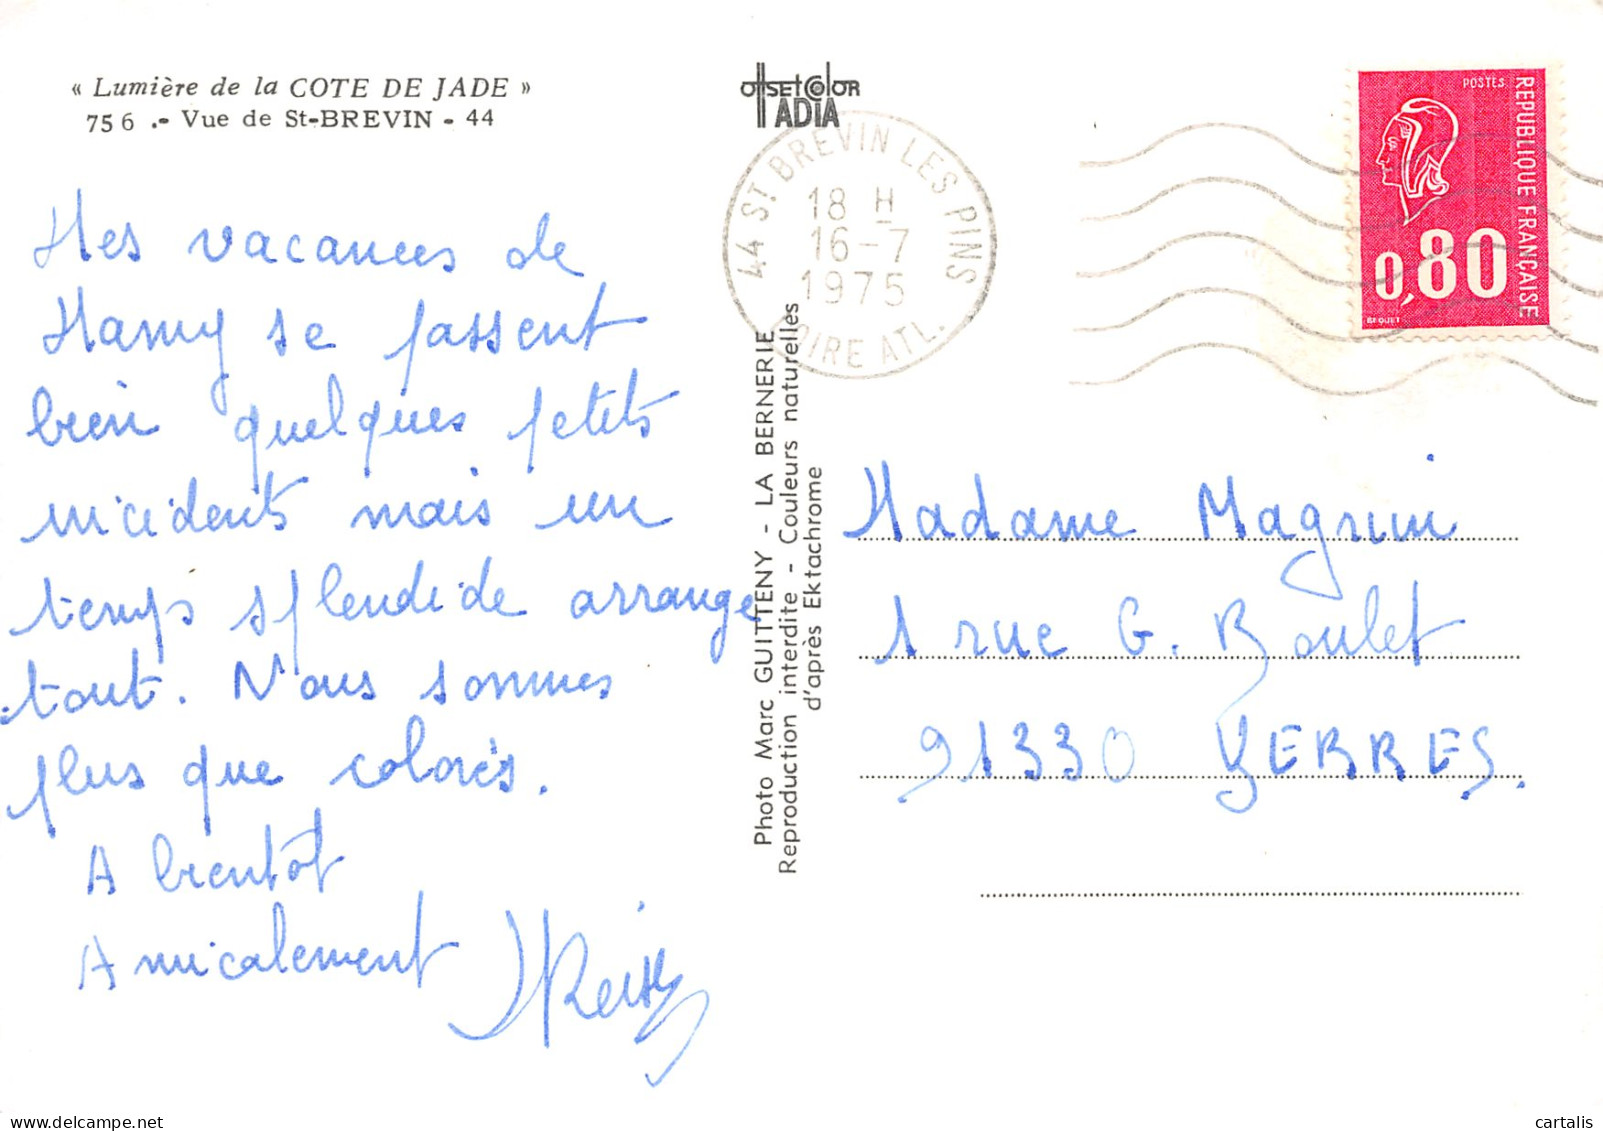 « Lumière de la COTE DE JADE »
756 .- Vue de St-BREVIN - 44
Mes vacances de
Mamy se passent
bien quelques petits
incidents mais un
temps splendide arrange
tout. Nous sommes
plus que colorés.
A bientôt
Amicalement
offset color
IADIA
44 ST BREVIN LES PINS
18 H
16-7
1975
LOIRE ATL.
Photo Marc GUITTENY - LA BERNERIE
Reproduction interdite - Couleurs naturelles
d'après Ektachrome
POSTES
REPUBLIQUE FRANÇAISE
0,80
BEQUET
Madame Magnin
1 rue G. Boulet
91330 YERRES.
cartalis
delcampe.net